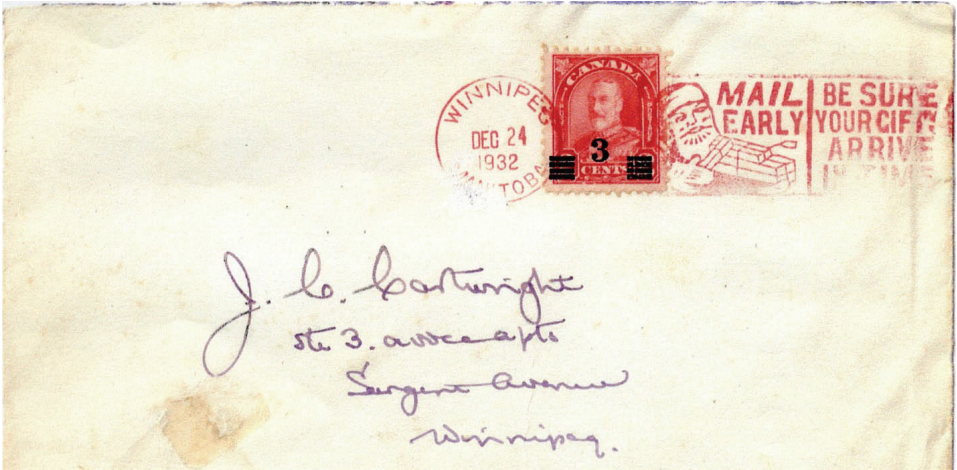 WINNIPEG
DEC 24
1932
MANITOBA
CANADA
3
CENTS
MAIL
EARLY
BE SURE
YOUR GIFTS
ARRIVE
IN TIME
J. C. Cartwright
ste 3. avoca apts
Sargent Avenue
Winnipeg.